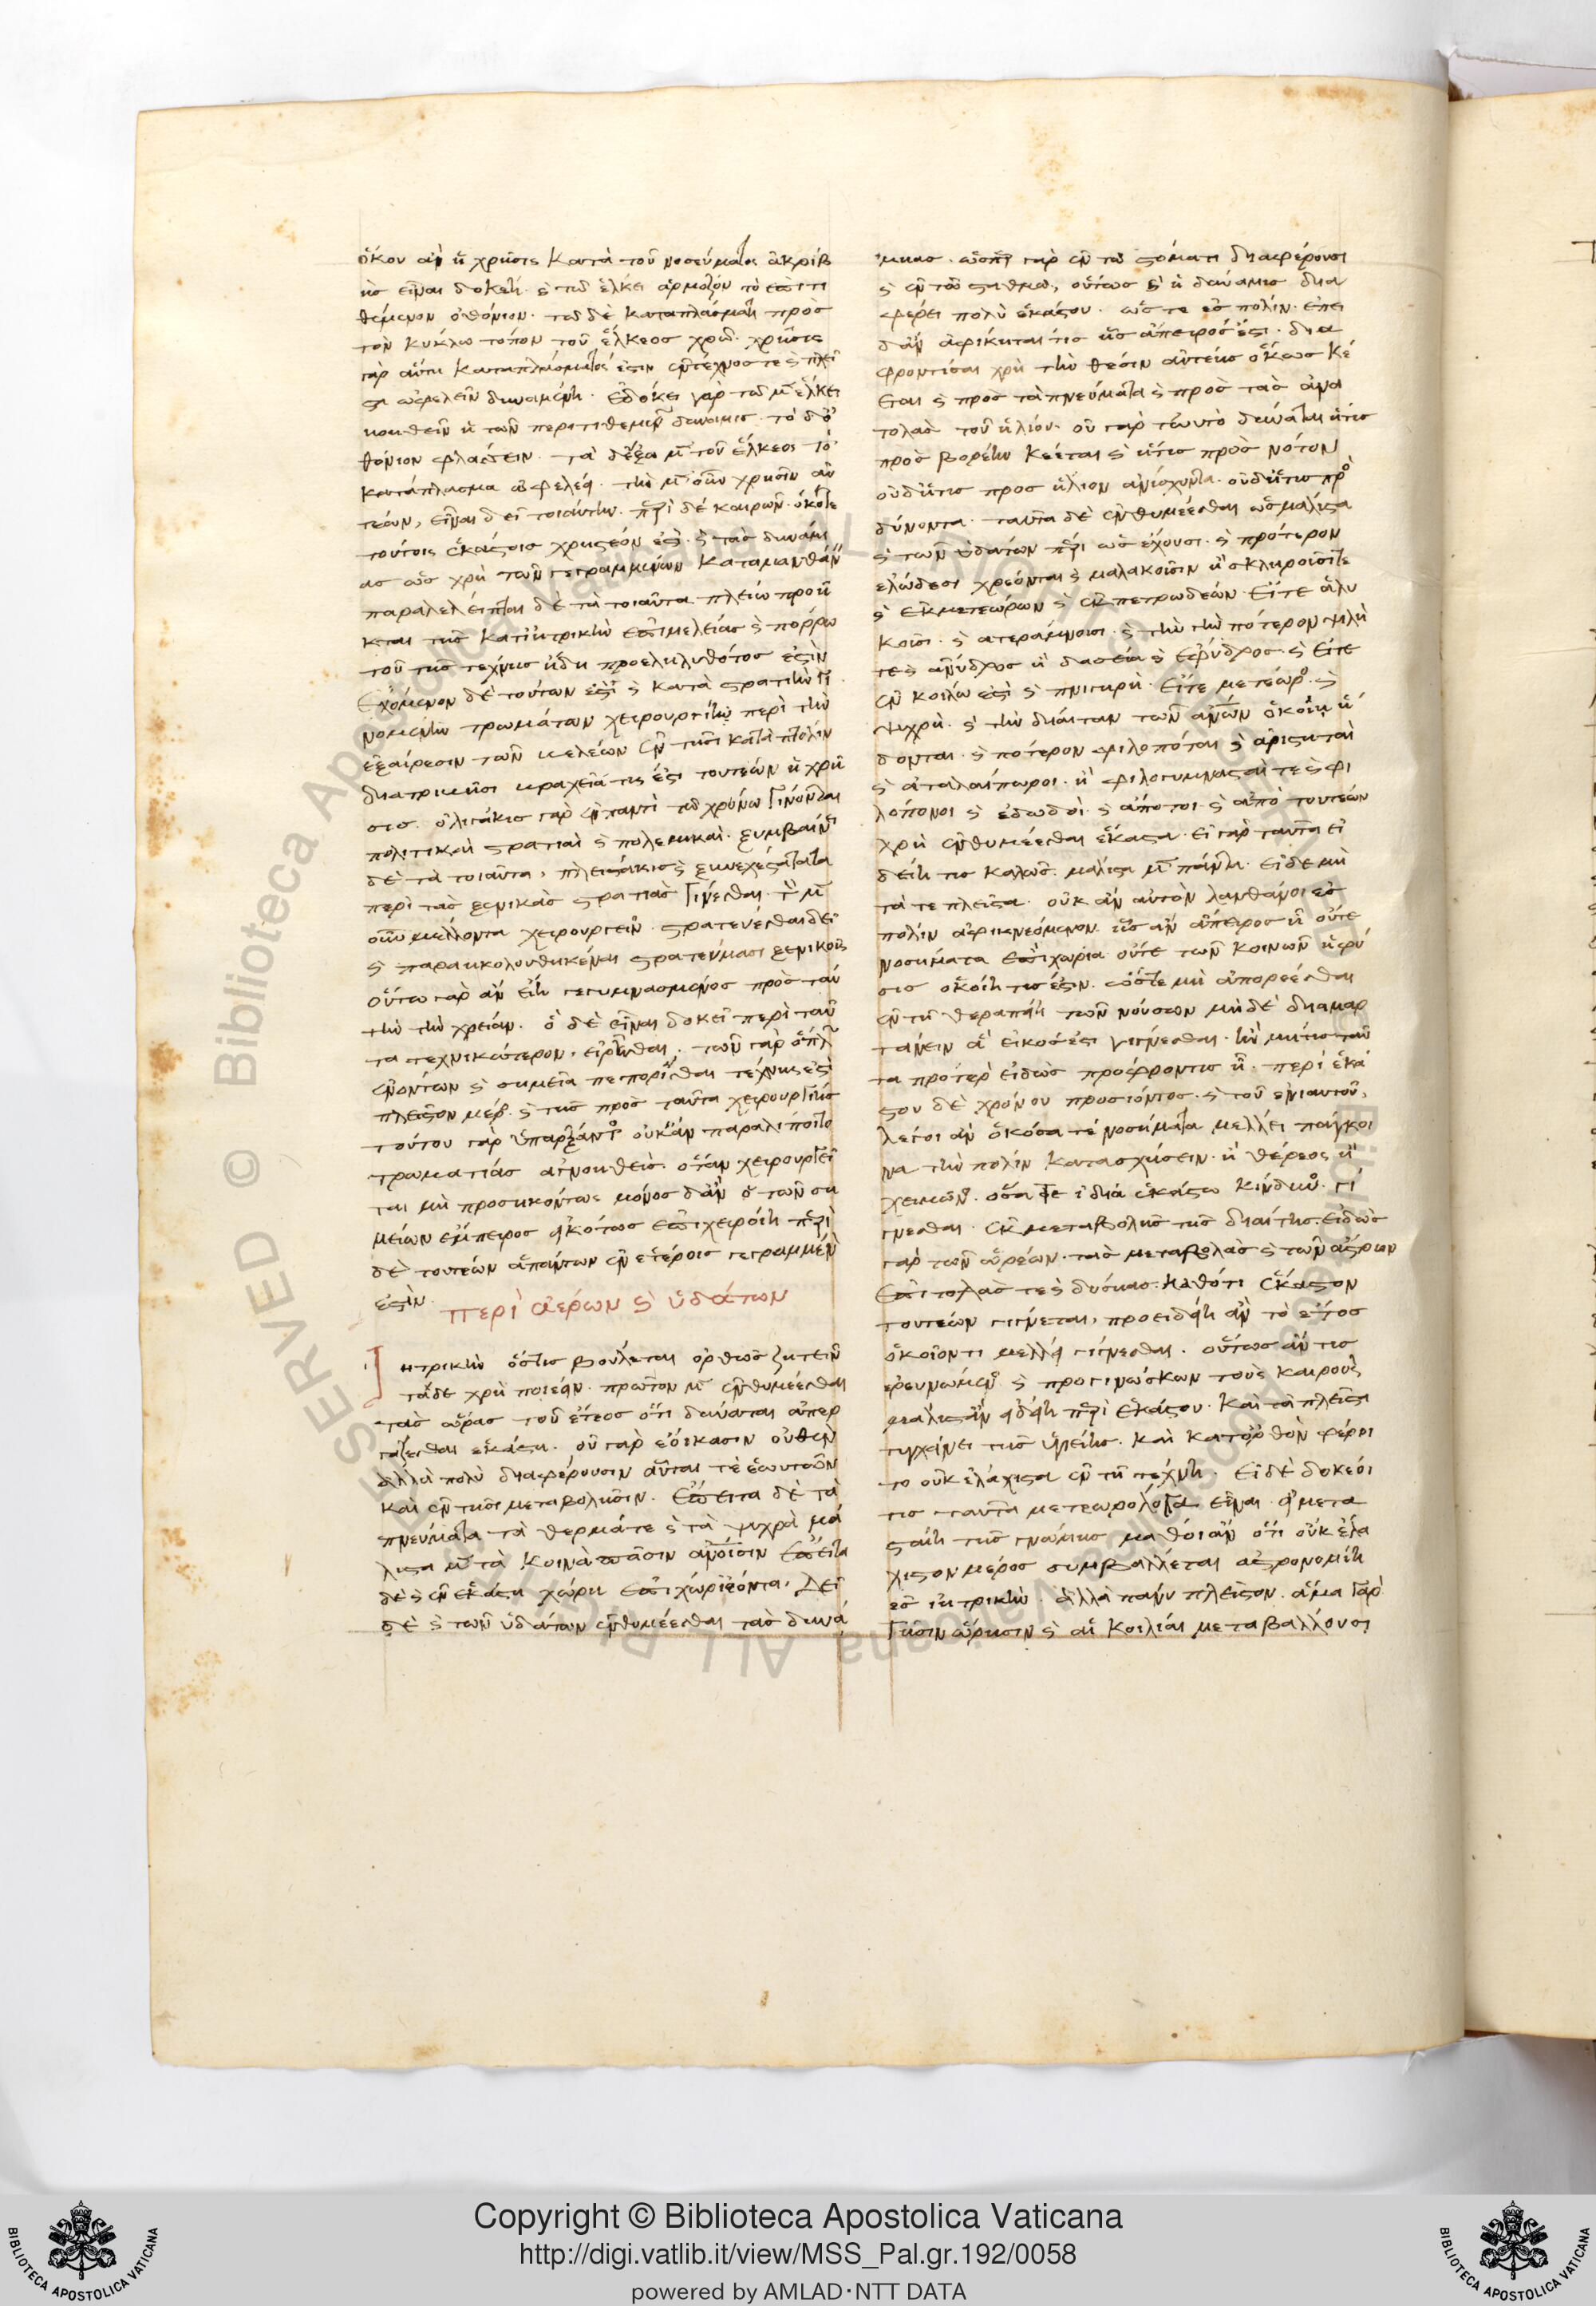 ὅκου ἂν ἡ χρῆσις κατὰ τοῦ νοσεύματος ἀκριβ
ὴς εἶναι δοκέῃ. καὶ τῷ ἕλκει ἁρμόζον τὸ ἐπιτι
θέμενον ὀθόνιον. τῷ δὲ καταπλάσματι πρὸς
τὸν κύκλῳ τόπον τοῦ ἕλκεος χρῶ. χρῆσις
γὰρ αὕτη καταπλάσματός ἐστιν ἔντεχνός τε καὶ πλεῖ
στα ὠφελεῖν δυναμένη. ἐδόκει γὰρ τῷ μὲν ἕλκει
βοηθεῖν ἡ τῶν περιτιθεμένων δύναμις. τὸ δ' ὀ
θόνιον φυλάσσειν. τὰ δ' ἔξω μὲν τοῦ ἕλκεος τὸ
κατάπλασμα ὠφελέει. τὴν μὲν οὖν χρῆσιν αὐ
τεων, εἶναι δεῖ τοιαύτην. περὶ δὲ καιρῶν. ὁκότε
τούτοις ἑκάστοις χρηστέον ἐστὶ. καὶ τὰς δυνάμι
ας ὡς χρὴ τῶν γεγραμμένων καταμανθάνειν
παραλέλειπται δὲ τὰ τοιαῦτα πλείω προῆ
κται τῆς κατ' ἰητρικὴν ἐπιμελείας καὶ πόρρω
τοῦ τῆς τέχνης ἤδη προεληλυθότος ἐστὶν
Ἐχόμενον δὲ τούτων ἐστὶ καὶ κατὰ στρατιὴν γι
νομένων τρωμάτων χειρουργίην περὶ τὴν
ἐξαίρεσιν τῶν βελέων ἐν τῇσι κατὰ πόλιν
διατριβῇσι βραχεῖά τις ἐστι τουτέων ἡ χρῆ
σις. ὀλιγάκις γὰρ ἐν παντὶ τῷ χρόνῳ γίνονται
πολιτικαὶ στρατιαὶ καὶ πολεμικαὶ. ξυμβαίνει
δὲ τὰ τοιαῦτα, πλειστάκις καὶ ξυνεχέστατα
περὶ τὰς ξενικὰς στρατιὰς γίνεσθαι. τὸν μὲν
οὖν μέλλοντα χειρουργεῖν στρατεύεσθαι δεῖ
καὶ παρηκολουθηκέναι στρατεύμασι ξενικοῖς
οὕτω γὰρ ἂν εἴη γεγυμνασμένος πρὸς ταύ
την τὴν χρείαν. ὃ δὲ εἶναι δοκεῖ περὶ ταῦ
τα τεχνικώτερον, εἰρῆσθαι. τῶν γὰρ ὅπλων
ἐνόντων καὶ σημεῖα πεπορίσθαι τέχνης ἐστὶ
πλεῖστον μέρος καὶ τῆς πρὸς ταῦτα χειρουργίης
τούτου γὰρ ὑπάρξαντος οὐκ ἂν παραλίποιτο
τραματίας ἀγνοηθεὶς. ὅταν χειρουργεῖ
ται μὴ προσηκόντως μόνος δ' ἂν ὁ τῶν ση
μείων ἔμπειρος εἰκότως ἐπιχειροίη περὶ
δὲ τουτέων ἁπάντων ἐν ἑτέροις γεγραμμένον
ἐστὶν
Περὶ ἀέρων καὶ ὑδάτων
Ἰητρικὴν ὅστις βούλεται ὀρθῶς ζητεῖν
τάδε χρὴ ποιέειν. πρῶτον μὲν ἐνθυμέεσθαι
τὰς ὥρας τοῦ ἔτεος ὅτι δύναται ἀπερ
γάζεσθαι ἑκάστη. οὐ γὰρ ἐοίκασιν οὐθὲν
ἀλλὰ πολὺ διαφέρουσιν αὗταί τε ἑωυτῶν
καὶ ἐν τῇσι μεταβολῇσιν. Ἔπειτα δὲ τὰ
πνεύματα τὰ θερμά τε καὶ τὰ ψυχρὰ μά
λιστα μὲν τὰ κοινὰ πᾶσιν ἀνθρώποισιν ἔπειτα
δὲ καὶ ἐν ἑκάστῃ χώρῃ ἐπιχώρια ἐόντα. Δεῖ
δὲ καὶ τῶν ὑδάτων ἐνθυμέεσθαι τὰς δυνά
μιας. ὥσπερ γὰρ ἐν τῷ στόματι διαφέρουσι
καὶ ἐν τῷ σταθμῷ, οὕτως καὶ ἡ δύναμις δια
φέρει πολὺ ἑκάστου. ὥστε ἐς πόλιν. ἐπει
δὰν ἀφίκηταί τις ἧς ἄπειρός ἐστι. δια
φροντίσαι χρὴ τὴν θέσιν αὐτέης ὅκως κέ
εται καὶ πρὸς τὰ πνεύματα καὶ πρὸς τὰς ἀνα
τολὰς τοῦ ἡλίου. οὐ γὰρ τωυτὸ δύναται ἥτις
πρὸς βορέην κέεται καὶ ἥτις πρὸς νότον
οὐδ' ἥτις προς ἥλιον ἀνίσχοντα. οὐδ' ἥτις πρὸς
δύνοντα. ταῦτα δὲ ἐνθυμέεσθαι ὡς μάλιστα
καὶ τῶν ὑδάτων περὶ ὡς ἔχουσι. καὶ πρότερον
ἑλώδεσι χρέονται καὶ μαλακοῖσιν ἢ σκληροῖσί τε
καὶ ἐκ μετεώρων καὶ ἐκ πετρωδέων. Εἴτε ἁλυ
κοῖσι. καὶ ἀτεράμνοισι. καὶ τὴν γῆν πότερον ψιλή
τε καὶ ἄνυδρος ἢ δασεῖα καὶ ἔφυδρος. καὶ εἴτε
ἐν κοίλῳ ἐστὶ καὶ πνιγηρὴ. Εἴτε μετέωρος. καὶ
ψυχρὴ. καὶ τὴν δίαιταν τῶν ἀνθρώπων ὁκοίῃ ἥ
δονται. καὶ πότερον φιλοπόται καὶ ἀριστηταὶ
καὶ ἀταλαίπωροι. ἢ φιλογυμνασταί τε καὶ φι
λόπονοι καὶ ἐδωδοὶ. καὶ ἄποτοι. καὶ ἀπὸ τουτέων
χρὴ ἐνθυμέεσθαι ἕκαστα. εἰ γὰρ ταῦτα εἰ
δείη τις καλῶς. μάλιστα μὲν πάντα. εἰ δὲ μὴ
τά τε πλεῖστα. οὐκ ἂν αὐτὸν λανθάνοι ἐς
πόλιν ἀφικνεόμενον. ἧς ἂν ἄπειρος ᾖ οὔτε
νοσήματα ἐπιχώρια οὔτε τῶν κοινῶν ἡ φύ
σις ὁκοίη τίς ἐστιν. ὥστε μὴ ἀπορέεσθαι
ἐν τῇ θεραπείῃ τῶν νούσων μηδὲ διαμαρ
τάνειν ἃ εἰκός ἐστι γίγνεσθαι. ἢν μή τις ταῦ
τα πρότερον εἰδὼς προσφροντίσῃ. περὶ ἑκά
στου δὲ χρόνου προσιόντος. καὶ τοῦ ἐνιαυτοῦ,
λέγοι ἂν ὁκόσα τε νοσήματα μέλλει πάγκοι
να τὴν πόλιν κατασχήσειν. ἢ θέρεος ἢ
χειμῶνος. ὅσα τε ἴδια ἑκάστῳ κίνδυνος γί
γνεσθαι. ἐκ μεταβολῆς τῆς διαίτης. εἰδὼς
γὰρ τῶν ὡρέων. τὰς μεταβολὰς καὶ τῶν ἄστρων
ἐπιτολάς τε καὶ δύσιας. καθότι ἕκαστον
τουτέων γίγνεται, προειδείη ἂν τὸ ἔτος
ὁκοῖόν τι μέλλει γίγνεσθαι. οὕτως ἄν τις
ἐρευνώμενος καὶ προγινώσκων τοὺς καιροὺς
μάλιστ' ἂν εἰδείη περὶ ἑκάστου. Καὶ τὰ πλεῖστα
τυγχάνει τῆς ὑγιείης. καὶ κατ' ὀρθὸν φέροι
το οὐκ ἐλάχιστα ἐν τῇ τέχνῃ. Εἰ δὲ δοκέοι
τις ταῦτα μετεωρολόγα εἶναι. εἰ μετα
σταίη τῆς γνώμης μάθοι ἂν ὅτι οὐκ ἐλά
χιστον μέρος συμβάλλεται ἀστρονομίη
ἐς ἰητρικὴν. ἀλλὰ πάνυ πλεῖστον. ἅμα γὰρ
τῇσιν ὥρῃσιν καὶ αἱ κοιλίαι μεταβάλλουσι
Copyright © Biblioteca Apostolica Vaticana
http://digi.vatlib.it/view/MSS_Pal.gr.192/0058
powered by AMLAD·NTT DATA